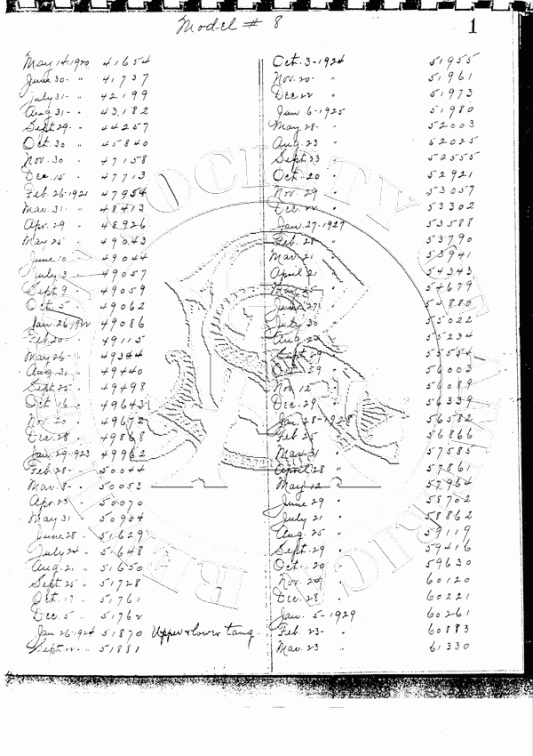 Model # 8
1
May 14-1920 41654
June 30- " 41737
July 31- " 42199
Aug 31- " 43182
Sept 29- " 44257
Oct. 30 " 45840
Nov. 30 " 47158
Dec. 15 " 47713
Feb. 26-1921 47954
Mar. 31- " 48413
Apr. 29 " 48926
May 25 " 49043
June 10 " 49044
July 3 49057
Sept 9 49059
Oct. 5 49062
Jan. 26-1922 49086
Feb. 20 49115
May 26 49344
Aug. 31 49440
Sept. 25 49498
Oct. 16 49643
Nov. 20 49672
Dec. 28 49868
Jan. 29-1923 49962
Feb. 28 50044
Mar. 8 50052
Apr. 23 50070
May 31 50904
June 28 51629
July 24 51648
Aug. 21 51650
Sept 25 51728
Oct. 17 51761
Dec. 5 51762
Jan 26-1924 51870 Upper & lower tang.
Sept. " 51881
Oct. 3-1924 51955
Nov. 20- " 51961
Dec 22 " 51973
Jan 6-1925 51980
May 28- " 52003
Aug. 23 " 52025
Sept. 23 " 52555
Oct. 20 " 52921
Nov. 29 " 53057
Dec. 22 " 53302
Jan. 27-1927 53588
Feb. 28 " 53790
Mar. 21 " 53941
April 21 54343
54679
June 27 54880
July 30 55022
Aug. 22 55234
Sept. 29 55554
Oct. 29 56003
Nov. 12 56089
Dec. 29 56339
Jan. 28-1928 56582
Feb. 25 56866
Mar. 31 57585
April 28 " 57861
May 12 57964
June 29 " 58702
July 21 " 58862
Aug. 25 " 59119
Sept. 29 " 59416
Oct. 20 " 59630
Nov. 24 " 60120
Dec. 28 " 60221
Jan. 5-1929 60261
Feb. 23- " 60883
Mar. 23 " 61330